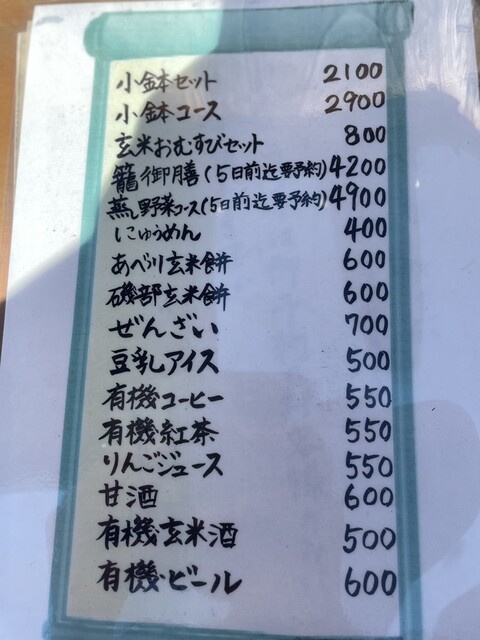 小鉢セット 2100
小鉢コース 2900
玄米おむすびセット 800
籠御膳(5日前迄要予約) 4200
蒸し野菜コース(5日前迄要予約) 4900
にゅうめん 400
あべ川玄米餅 600
磯部玄米餅 600
ぜんざい 700
豆乳アイス 500
有機コーヒー 550
有機紅茶 550
りんごジュース 550
甘酒 600
有機玄米酒 500
有機・ビール 600